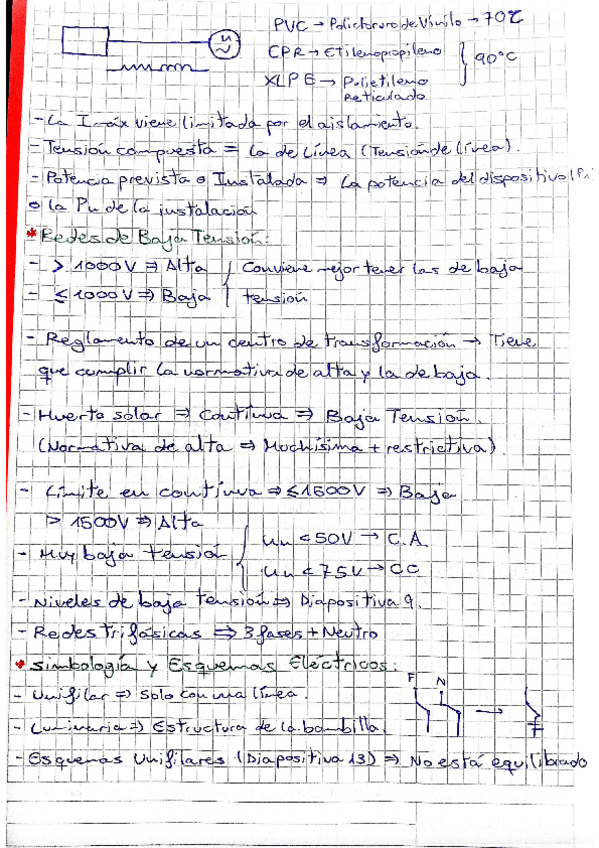 PVC → Policloruro de Vinilo → 70℃
CPR → Etilenopropileno
90°C
XLPE → Polietileno
Reticulado
- La Imáx viene limitada por el aislamiento.
- Tensión compuesta = La de Línea (Tensión de línea).
- Potencia prevista o Instalada ⇒ La potencia del dispositivo (Pn
o la Pn de la instalación
* Redes de Baja Tensión:
- > 1000V ⇒ Alta
- ≤ 1000V ⇒ Baja
Conviene mejor tener las de baja
tensión
- Reglamento de un centro de transformación → Tiene
que cumplir la normativa de alta y la de baja.
- Huerto solar ⇒ Contínua ⇒ Baja Tensión.
(Normativa de alta ⇒ Muchísima + restrictiva)
- Límite en contínua ⇒ ≤ 1500V ⇒ Baja
> 1500V ⇒ Alta
- Muy baja tensión
Un < 50V → C.A.
Un < 75V → CC
- Niveles de baja tensión ⇒ Diapositiva 9.
- Redes Trifásicas ⇒ 3 fases + Neutro
* Simbología y Esquemas Eléctricos:
F N
- Unifilar ⇒ Solo con una línea.
- Luminaria ⇒ Estructura de la bombilla.
- Esquemas Unifilares (Diapositiva 13) ⇒ No está equilibrado